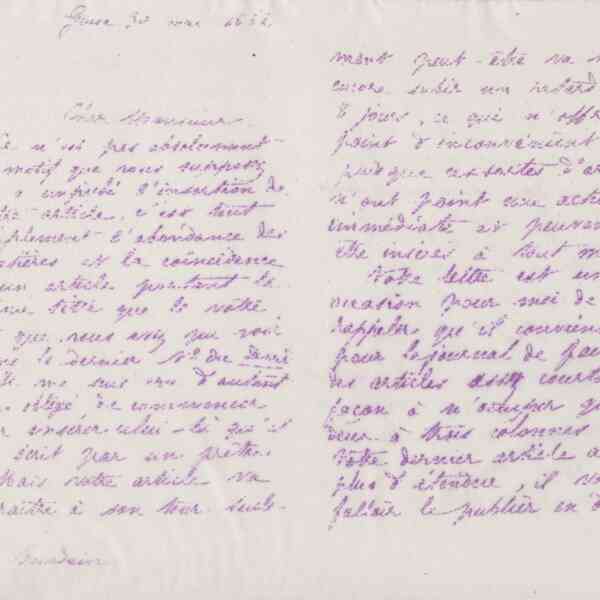 30 mai
Cher Monsieur.
n'est pas absolument
motif que vous supposez
a empêché l'insertion de
article, c'est tout
simplement l'abondance des
matières et la coïncidence
un article portant le
titre que le vôtre
que vous avez pu voir
le dernier No. du
me suis vu d'autant
obligé de commencer
insérer celui-là qu'il
écrit par un prêtre.
Mais votre article va
paraître à son tour. Seule-
ment peut-être va
encore subir un retard
8 jours, ce qui n'offre
point d'inconvénient
puisque ces sortes d'ar
n'ont point une actu
immédiate et peuvent
être insérés à tout m
Votre lettre est un
occasion pour moi de
rappeler qu'il convien
pour le journal de fai
des articles assez courts
façon à n'occuper que
deux à trois colonnes
Votre dernier article a
plus d'étendue, il
falloir le publier en d